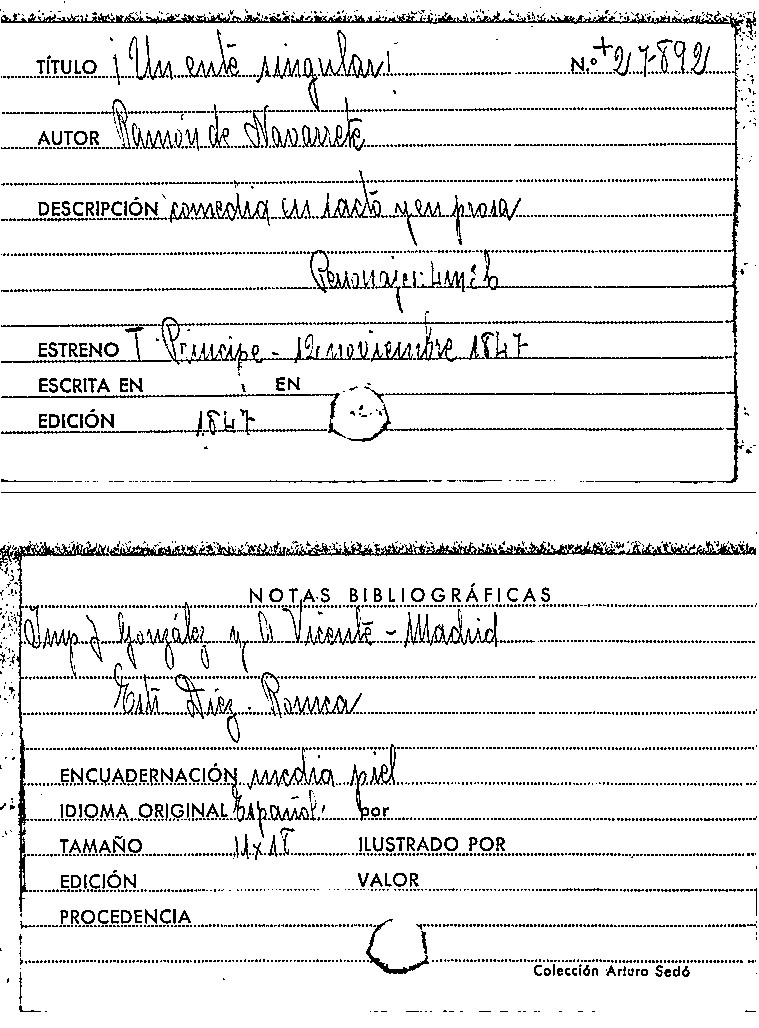 TÍTULO ¡Un ente singular! N.º + 27-892
AUTOR Ramón de Navarrete
DESCRIPCIÓN comedia en 1 acto y en prosa
Personajes: 4 m 2 h
ESTRENO T. Príncipe - 12 noviembre 1847
ESCRITA EN EN
EDICIÓN 1847
NOTAS BIBLIOGRÁFICAS
Imp J González y A Vicente - Madrid
Díez. Ronca
ENCUADERNACIÓN media piel
IDIOMA ORIGINAL Español. por
TAMAÑO 11x18 ILUSTRADO POR
EDICIÓN VALOR
PROCEDENCIA
Colección Arturo Sedó